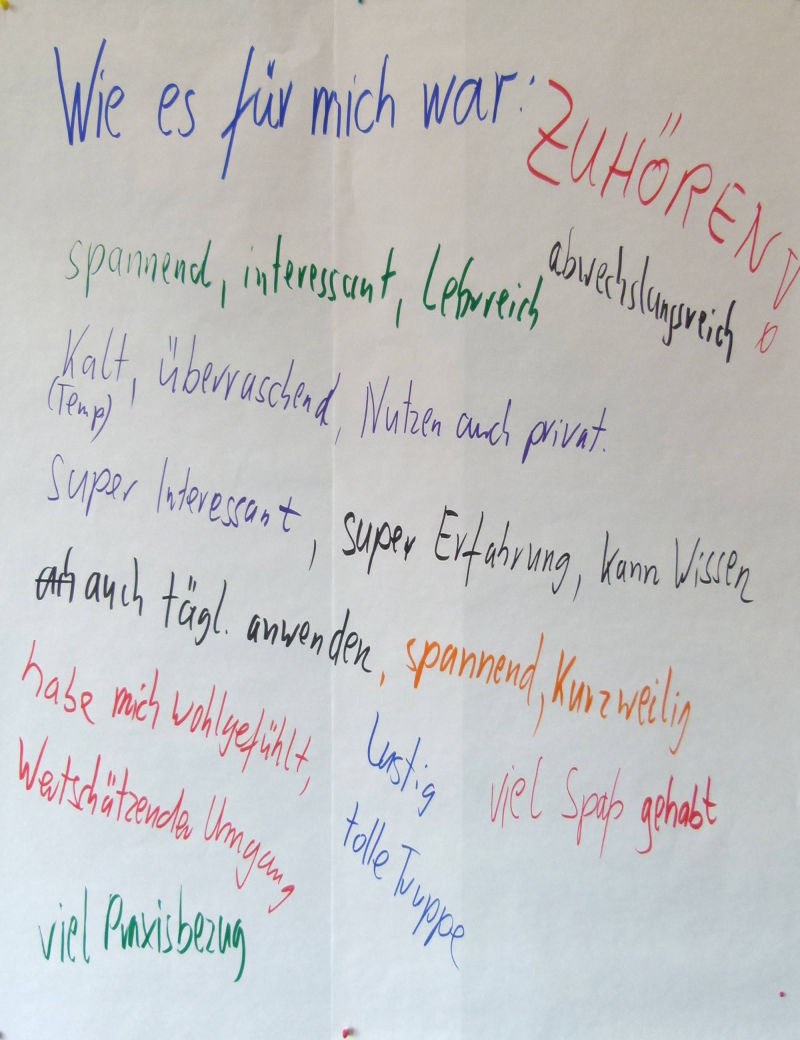 Wie es für mich war:
ZUHÖREN!
spannend, interessant, Lehrreich
abwechslungsreich
Kalt, überraschend, Nutzen auch privat.
(Temp)
Super Interessant, super Erfahrung, kann Wissen
auch tägl. anwenden, spannend, Kurzweilig
habe mich wohlgefühlt,
Wertschätzender Umgang
lustig
tolle Truppe
viel Spaß gehabt
viel Praxisbezug